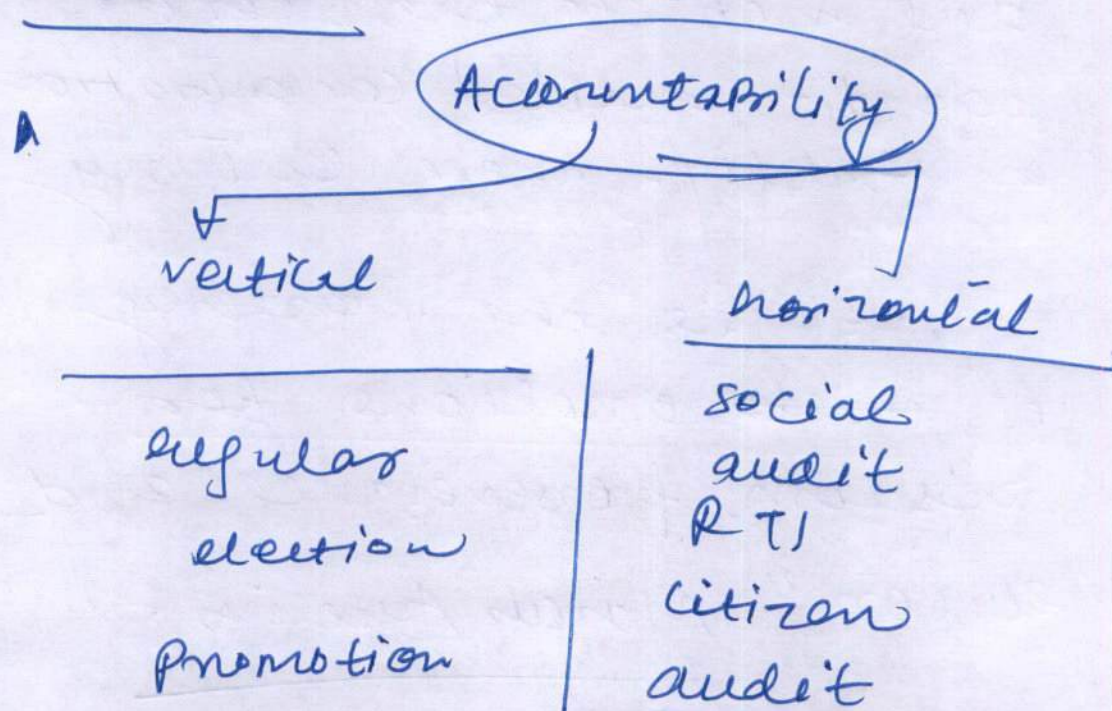 Accountability
vertical
horizontal
regular
election
promotion
social
audit
RTI
citizen
audit